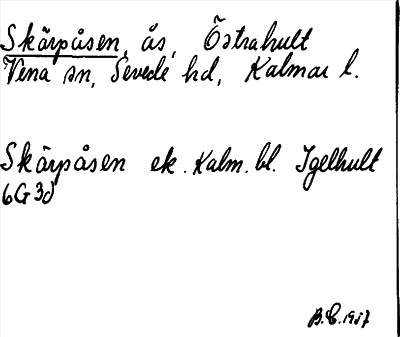 Skärpåsen, ås, Östrahult
Vena sn, Sevede hd, Kalmar l.
Skärpåsen ek. Kalm. bl. Igelhult
6G3d
B.E. 1957